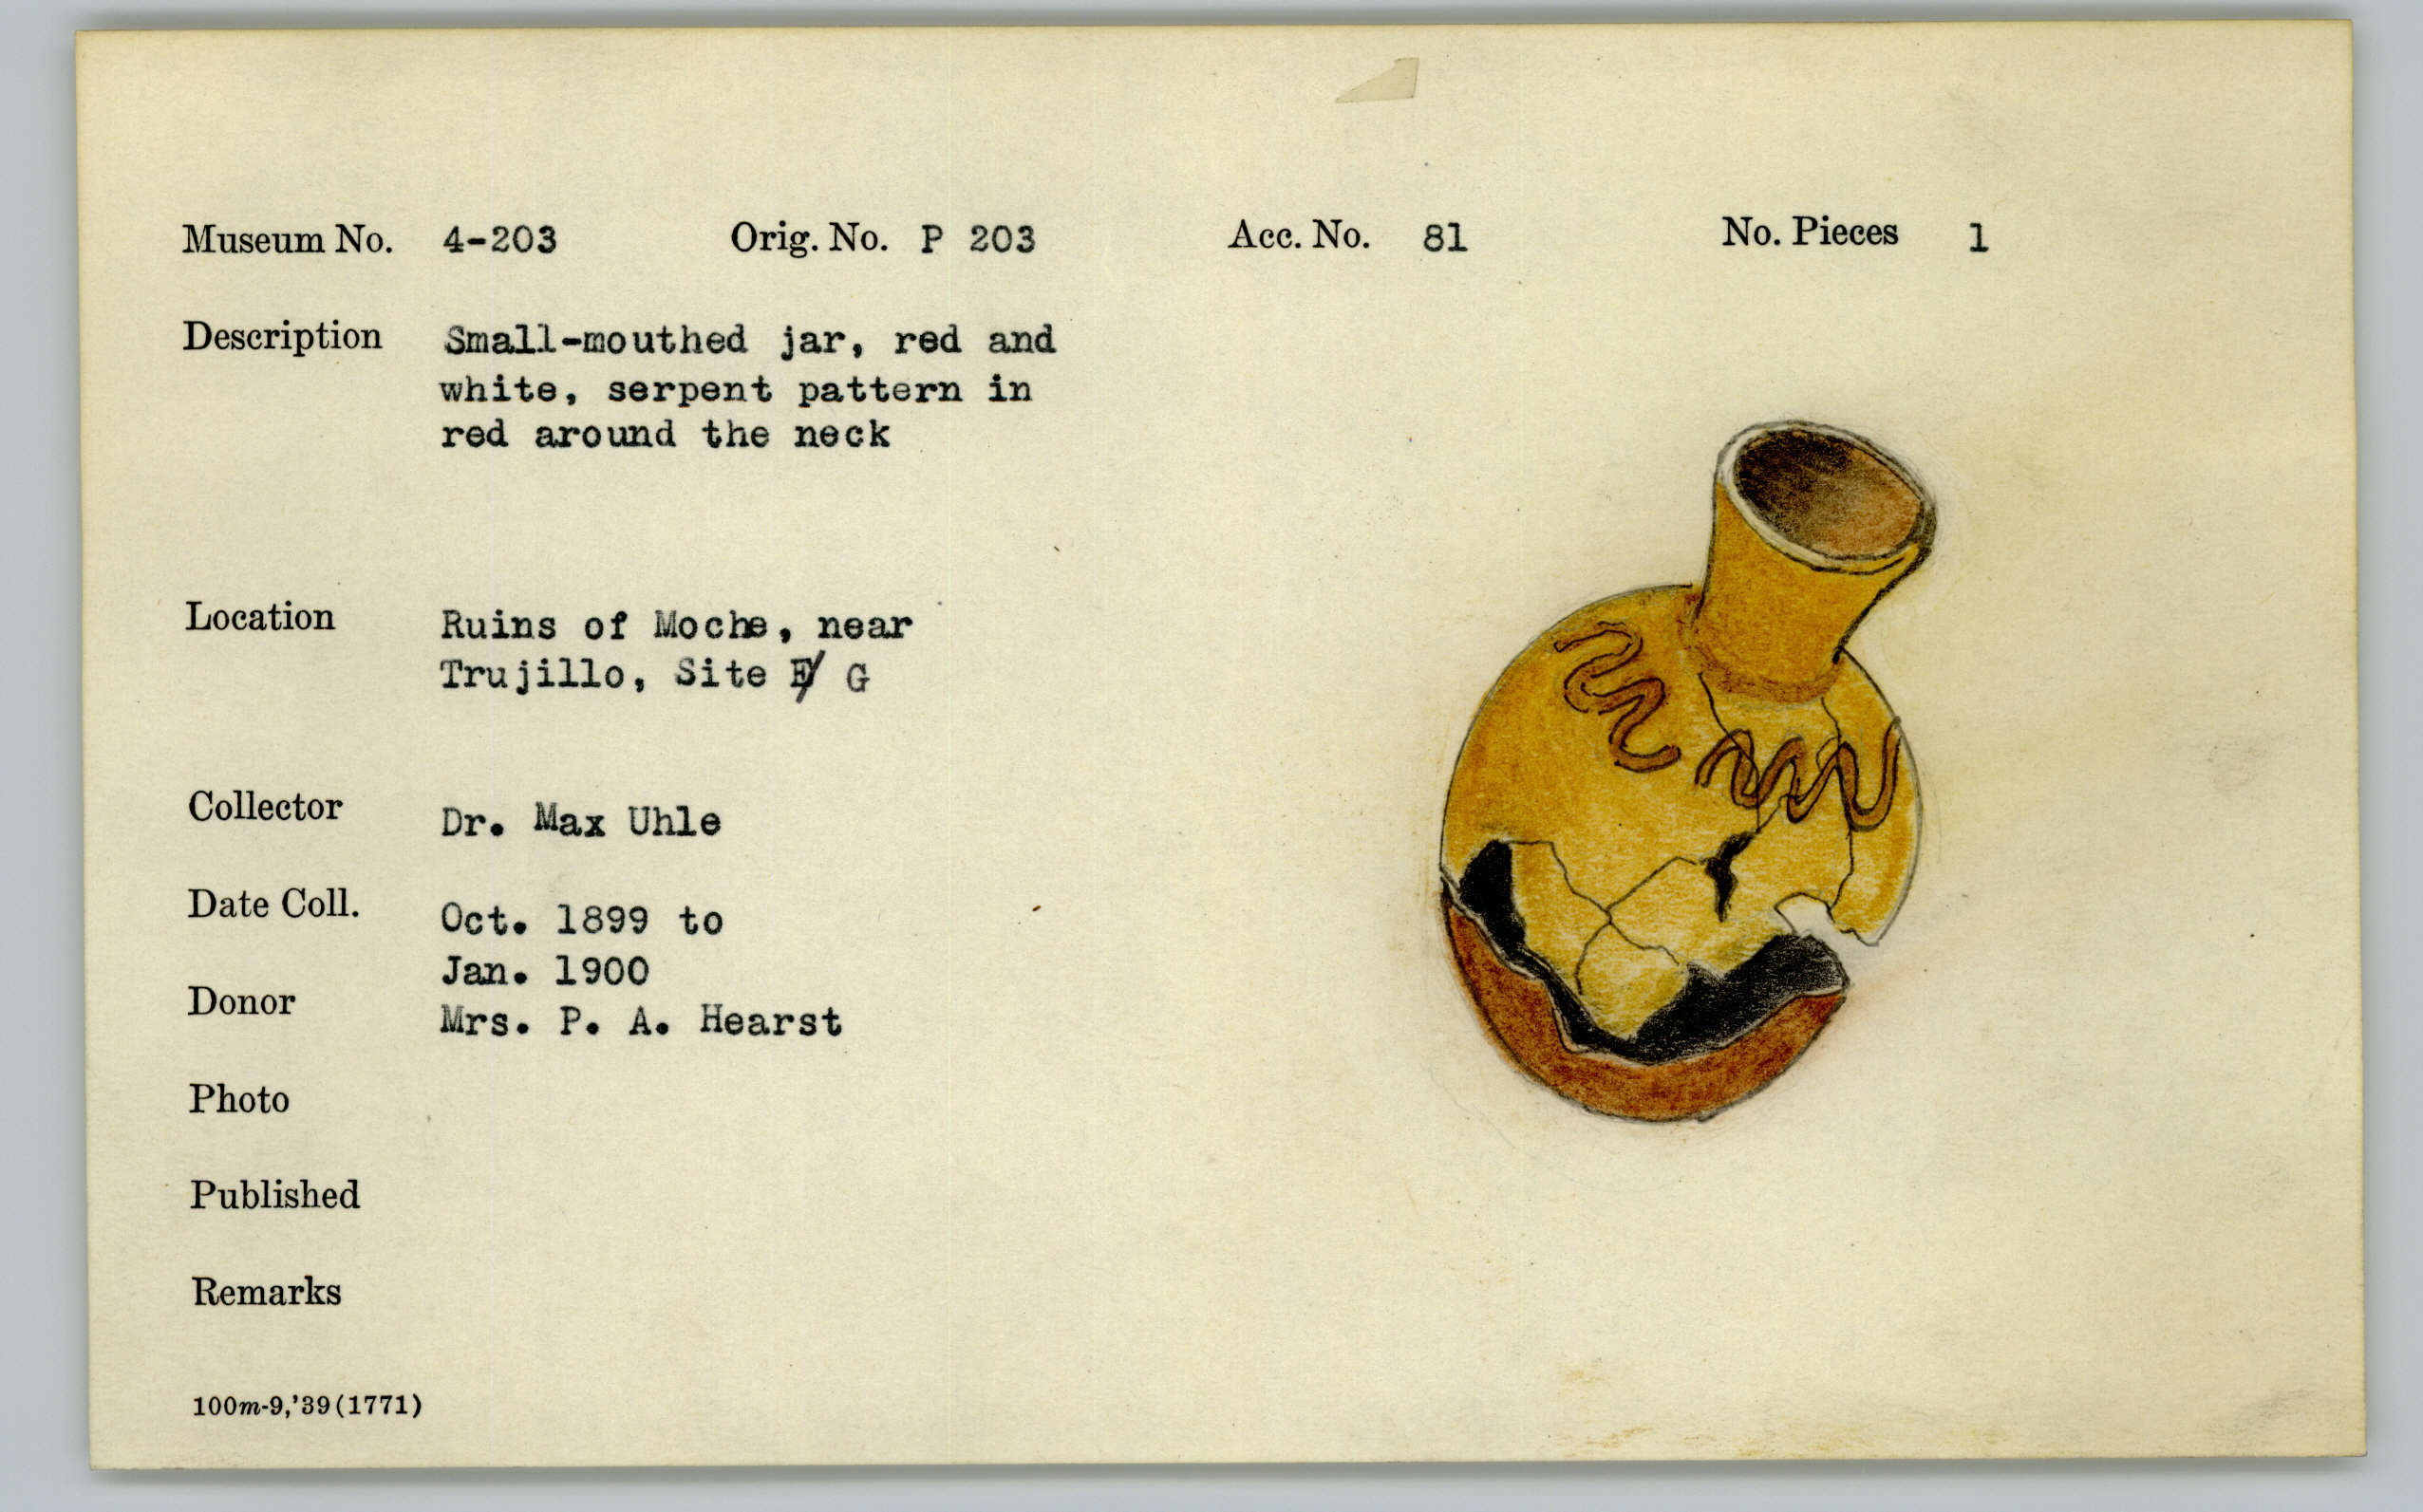 Museum No. 4-203 Orig. No. P 203 Acc. No. 81 No. Pieces 1
Description Small-mouthed jar, red and
white, serpent pattern in
red around the neck
Location Ruins of Moche, near
Trujillo, Site E G
Collector Dr. Max Uhle
Date Coll. Oct. 1899 to
Jan. 1900
Donor Mrs. P. A. Hearst
Photo
Published
Remarks
100m-9,'39(1771)